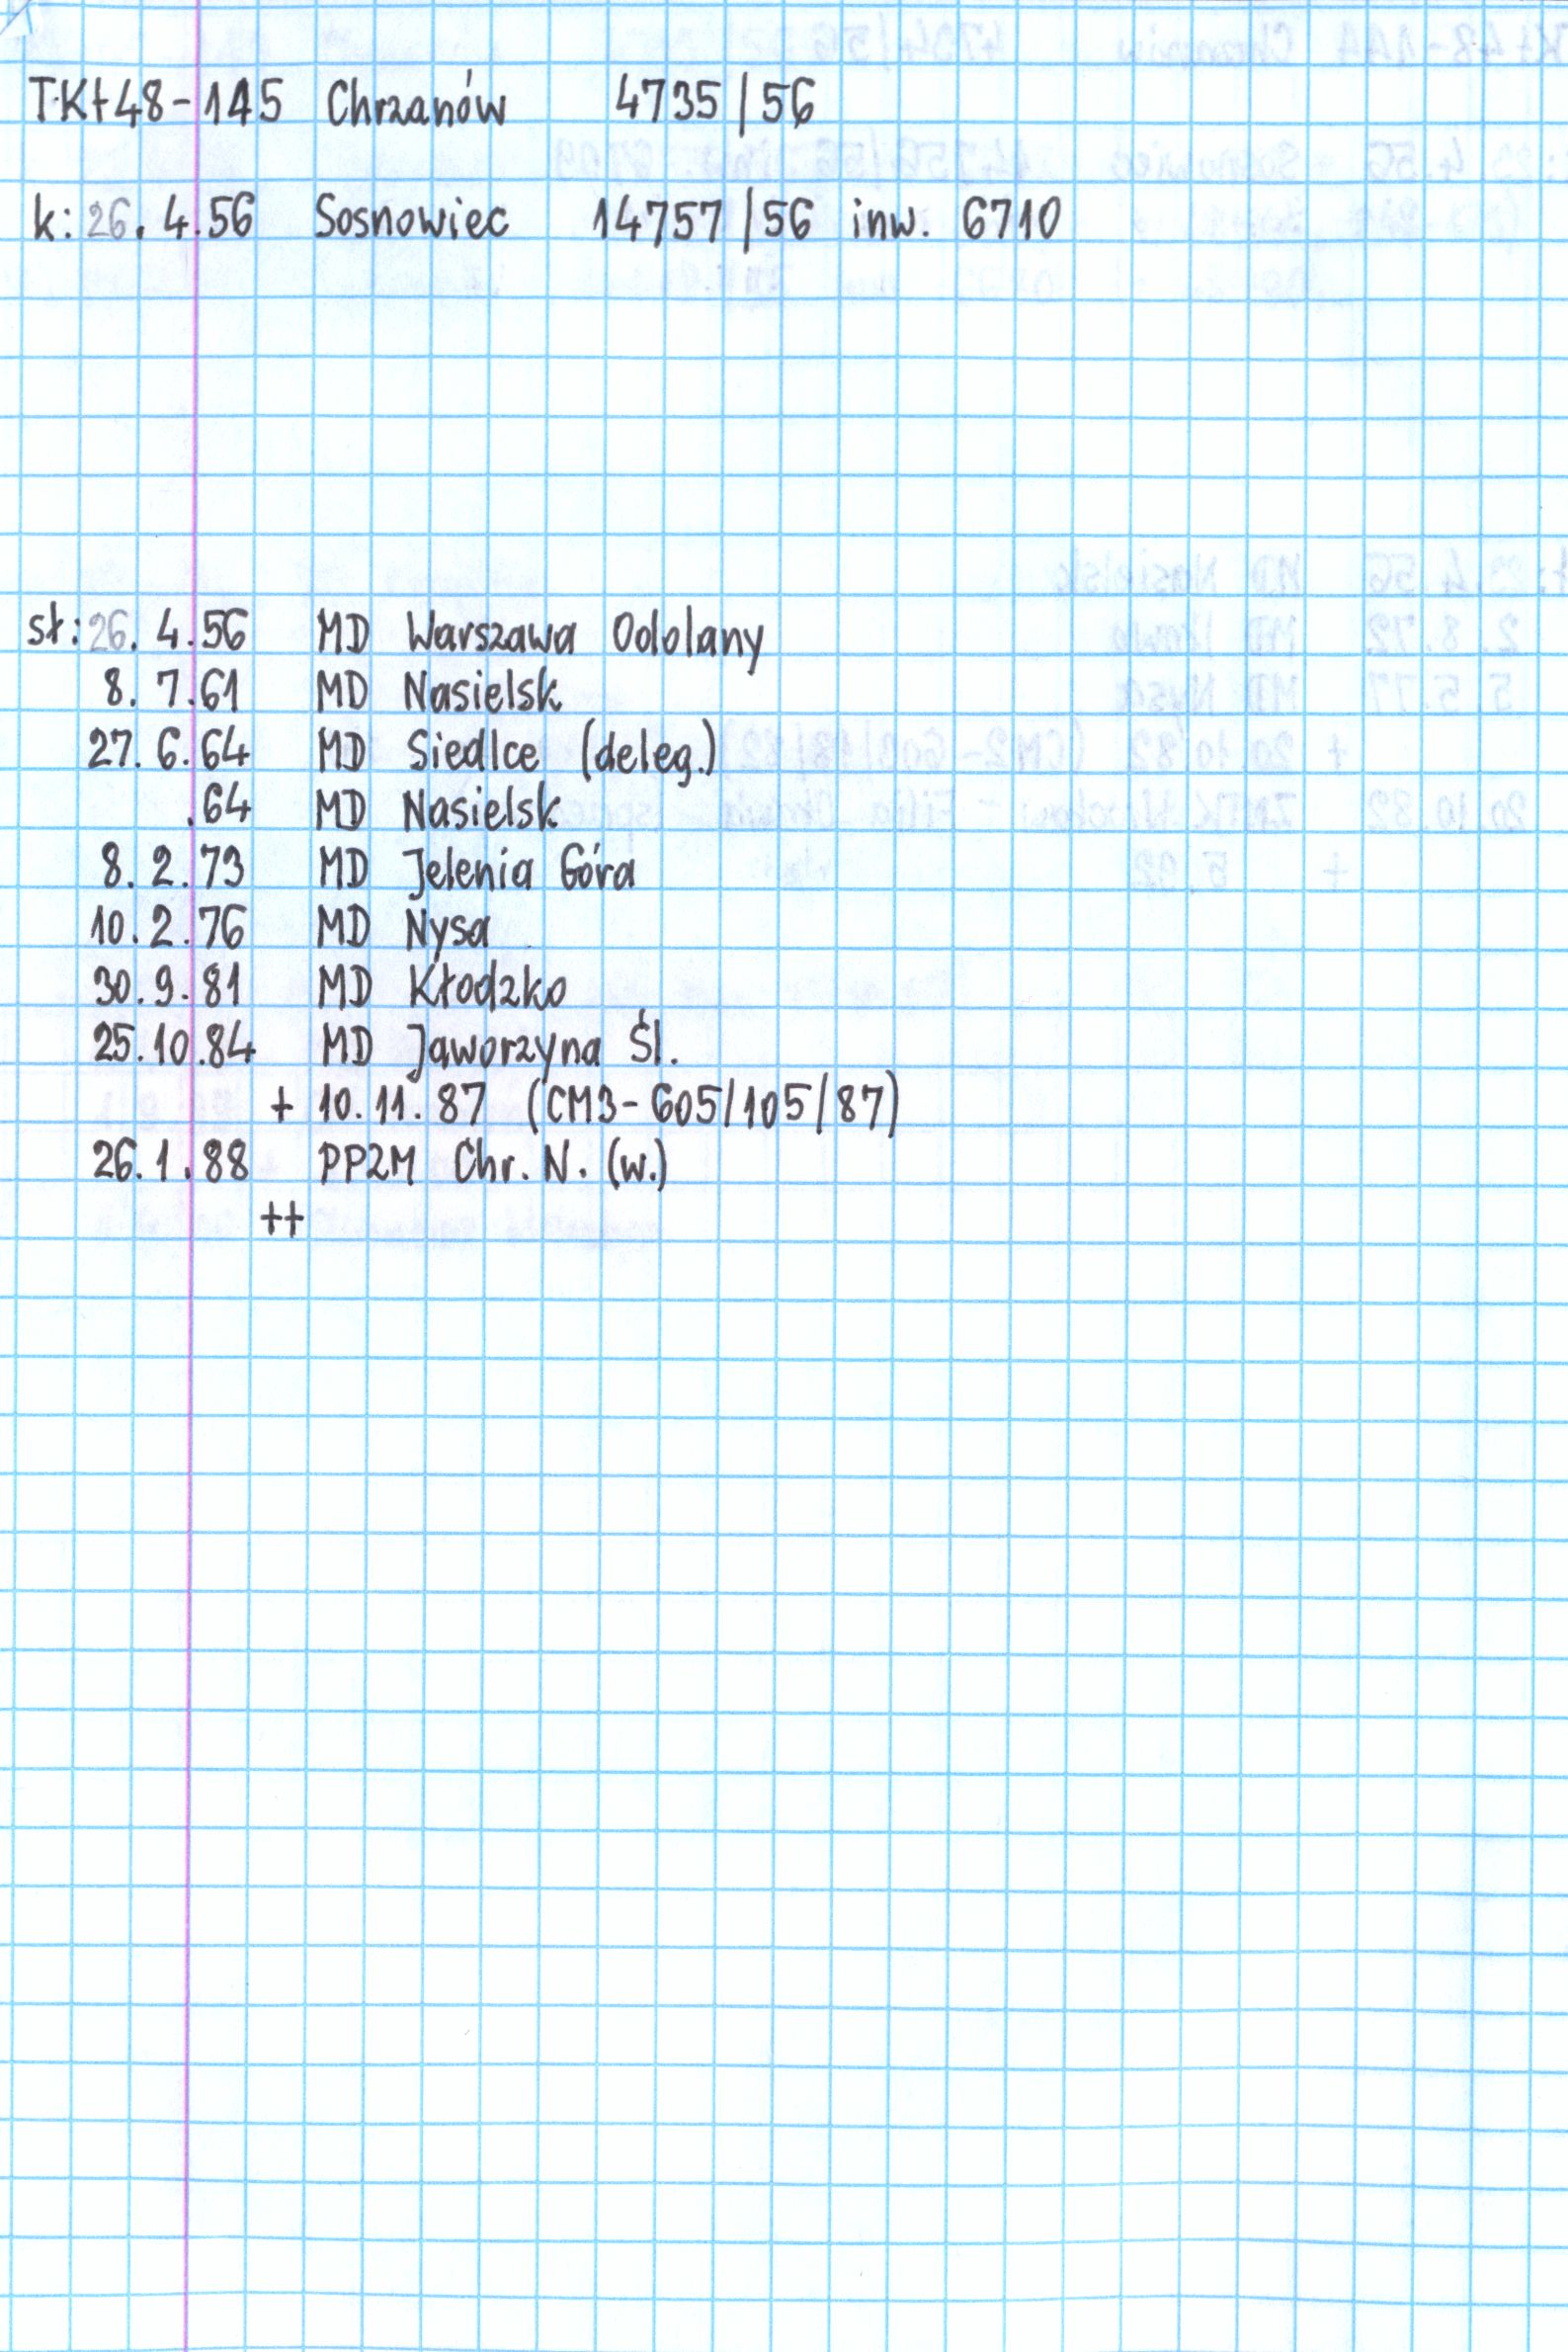 TKt48-145 Chrzanów 4735/56
k: 26. 4.56 Sosnowiec 14757/56 inw. 6710
st: 26. 4.56 MD Warszawa Odolany
8. 7.61 MD Nasielsk
27. 6.64 MD Siedlce (deleg.)
.64 MD Nasielsk
8. 2.73 MD Jelenia Góra
10. 2.76 MD Nysa
30. 9.81 MD Kłodzko
25.10.84 MD Jaworzyna Śl.
+ 10.11.87 (CM3-605/105/87)
26.1.88 PPZM Chr. N. (w.)
++